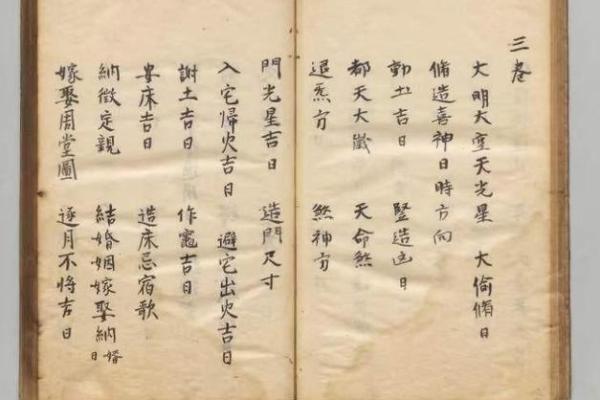 三卷
大明大空天光星 大偷脩日
脩造喜神日時方向
動土吉日 豎造凶日
都天大 天命煞
退炁方 煞神方
門光星吉日 造門尺寸
入宅歸火吉日 避宅出火吉日
謝土吉日 作竈吉日
安床吉日 造床忌宿歌
納徵定親 結婚姻嫁娶納婿日
嫁娶周堂圖 逐月不將吉日